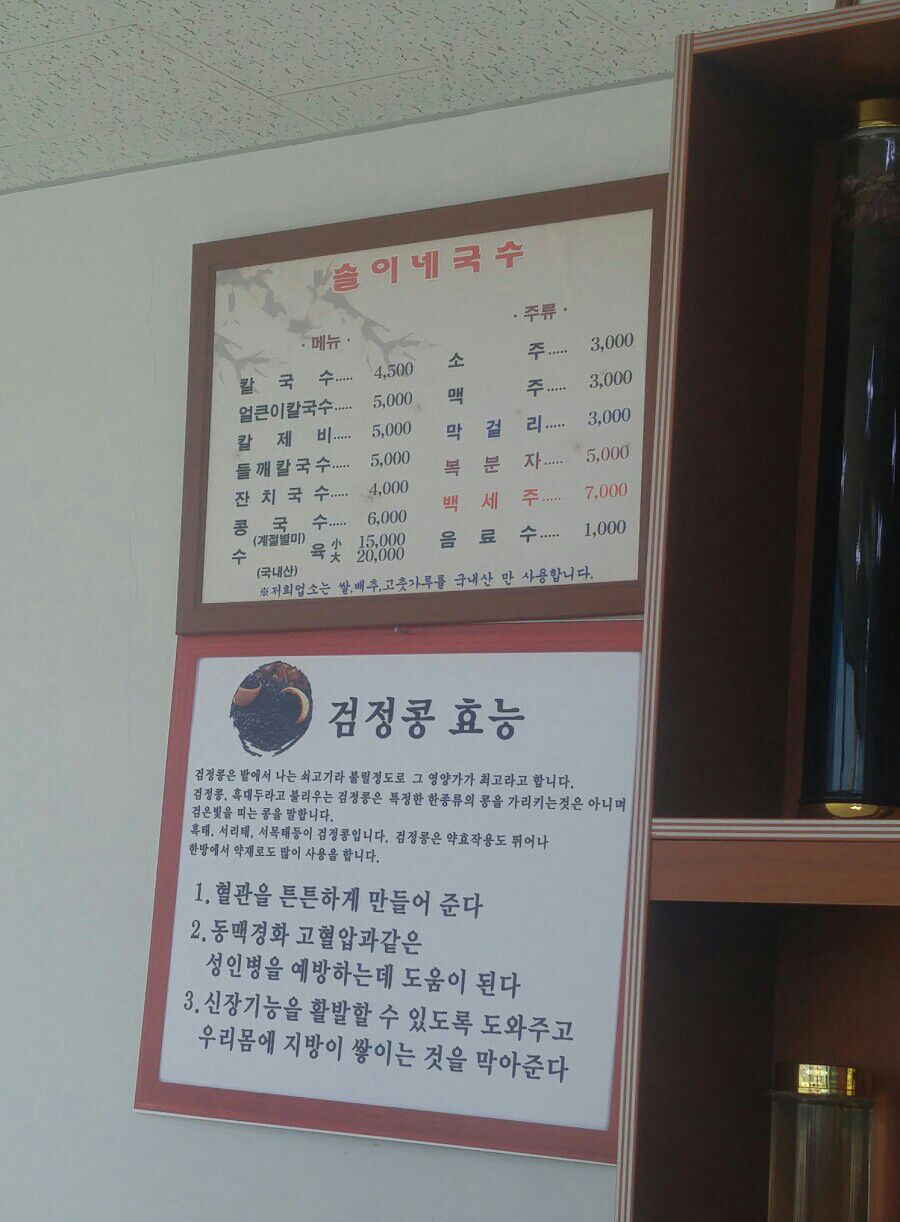 솔이네국수
· 메뉴 ·
칼국수..... 4,500
얼큰이칼국수..... 5,000
칼제비..... 5,000
들깨칼국수..... 5,000
잔치국수..... 4,000
콩국수..... 6,000
(계절별미)
수육 小 15,000
大 20,000
(국내산)
· 주류 ·
소주..... 3,000
맥주..... 3,000
막걸리..... 3,000
복분자..... 5,000
백세주..... 7,000
음료수..... 1,000
※저희업소는 쌀,배추,고춧가루를 국내산 만 사용합니다.
검정콩 효능
검정콩은 밭에서 나는 쇠고기라 불릴정도로 그 영양가가 최고라고 합니다.
검정콩, 흑대두라고 불리우는 검정콩은 특정한 한종류의 콩을 가리키는것은 아니며
검은빛을 띠는 콩을 말합니다.
흑태, 서리테, 서목태등이 검정콩입니다. 검정콩은 약효작용도 뛰어나
한방에서 약재로도 많이 사용을 합니다.
1. 혈관을 튼튼하게 만들어 준다
2. 동맥경화 고혈압과같은
성인병을 예방하는데 도움이 된다
3. 신장기능을 활발할 수 있도록 도와주고
우리몸에 지방이 쌓이는 것을 막아준다